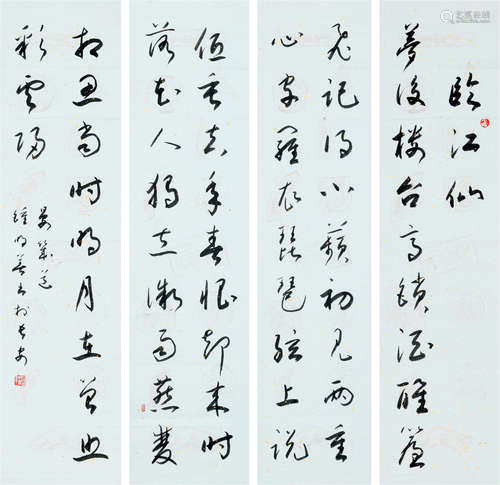 臨江仙
夢後樓台高鎖酒醒簾
飛記得小蘋初見兩重
心字羅衣琵琶弦上說
低垂去年春恨却來時
落花人獨立微雨燕雙
相思當時明月在曾照
彩雲歸
晏幾道
鍾明善書於長安